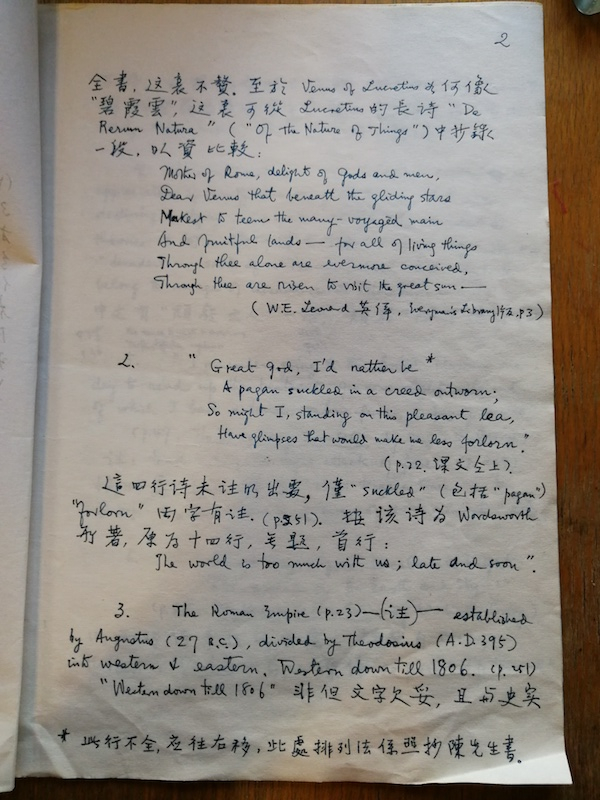 2
全書，这裏不贅．至於 Venus of Lucretius 为何像
"碧霞雲"，这裏可從 Lucretius 的長诗 "De
Rerum Natura" ("Of the Nature of Things") 中抄錄
一段，以資比較：
Mother of Rome, delight of Gods and men,
Dear Venus that beneath the gliding stars
Makest to teem the many-voyaged main
And fruitful lands — for all of living things
Through thee alone are evermore conceived,
Through thee are risen to visit the great sun —
(W.E. Leonard 英译, Everyman's Library 版, p.3)
2. "Great god, I'd rather be *
A pagan suckled in a creed outworn;
So might I, standing on this pleasant lea,
Have glimpses that would make me less forlorn."
(p.22. 课文仝上).
這四行诗未注明出處，僅 "suckled" (包括 "pagan")
"forlorn" 两字有注. (p.251). 按该诗为 Wordsworth
所著，原为十四行，無題，首行：
The world is too much with us; late and soon".
3. The Roman Empire (p.23)—(注)— established
by Augustus (27 B.C.), divided by Theodosius (A.D.395)
into western & eastern. Western down till 1806. (p.251)
"Western down till 1806" 非但文字欠妥，且与史实
* 此行不全，应往右移，此處排列法係照抄陳先生書。